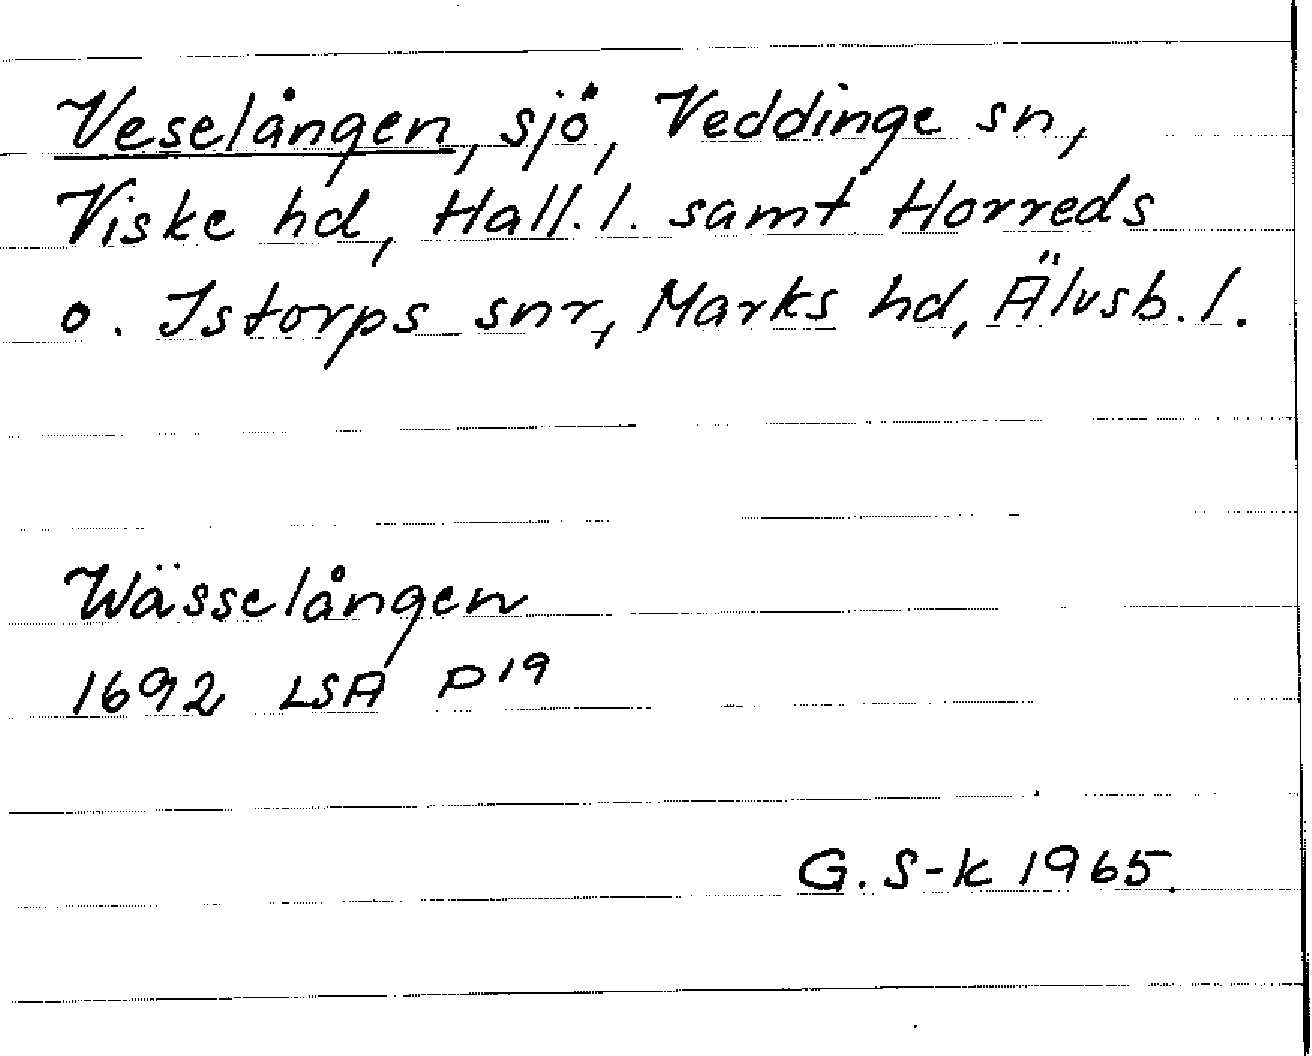 Veselången, sjö, Veddinge sn,
Viske hd, Hall. l. samt Horreds
o. Istorps snr, Marks hd, Älvsb. l.
Wässelången
1692 LSA P19
G. S-k 1965.